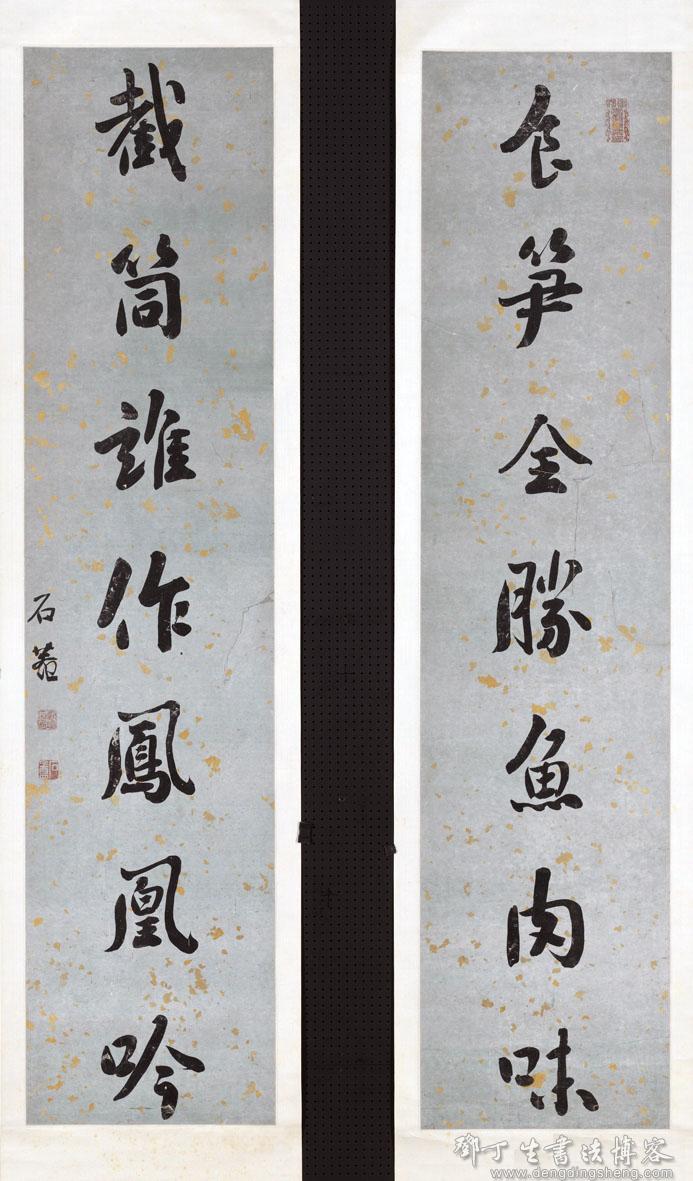 食笋全勝魚肉味
截筒誰作鳳凰吟
石菴
鄧丁生書法博客
www.dengdingsheng.com